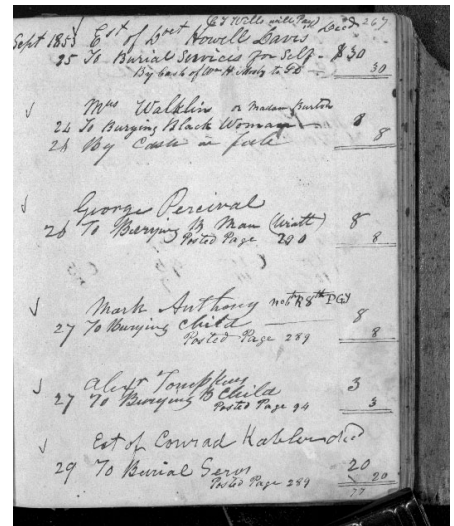 C T Wills will Pay 267
Sept 1853 Est of Doct Howell Davis Decd
25 To Burial Services for Self - $30
By Cash of Wm H to GD 30
Mrs Walklin or Madam Burton
24 To Burying Black Woman 8
28 By Cash in full 8
George Percival
26 To Burying B Man (Wiatt) 8
Posted Page 290 8
Mark Anthony not R 8th PGY
27 To Burying Child 8
Posted Page 289 8
Alexr Tompkins
27 To Burying B Child 3
Posted Page 94 3
Est of Conrad Kahler decd
29 To Burial Servs 20
Posted Page 289 20
77